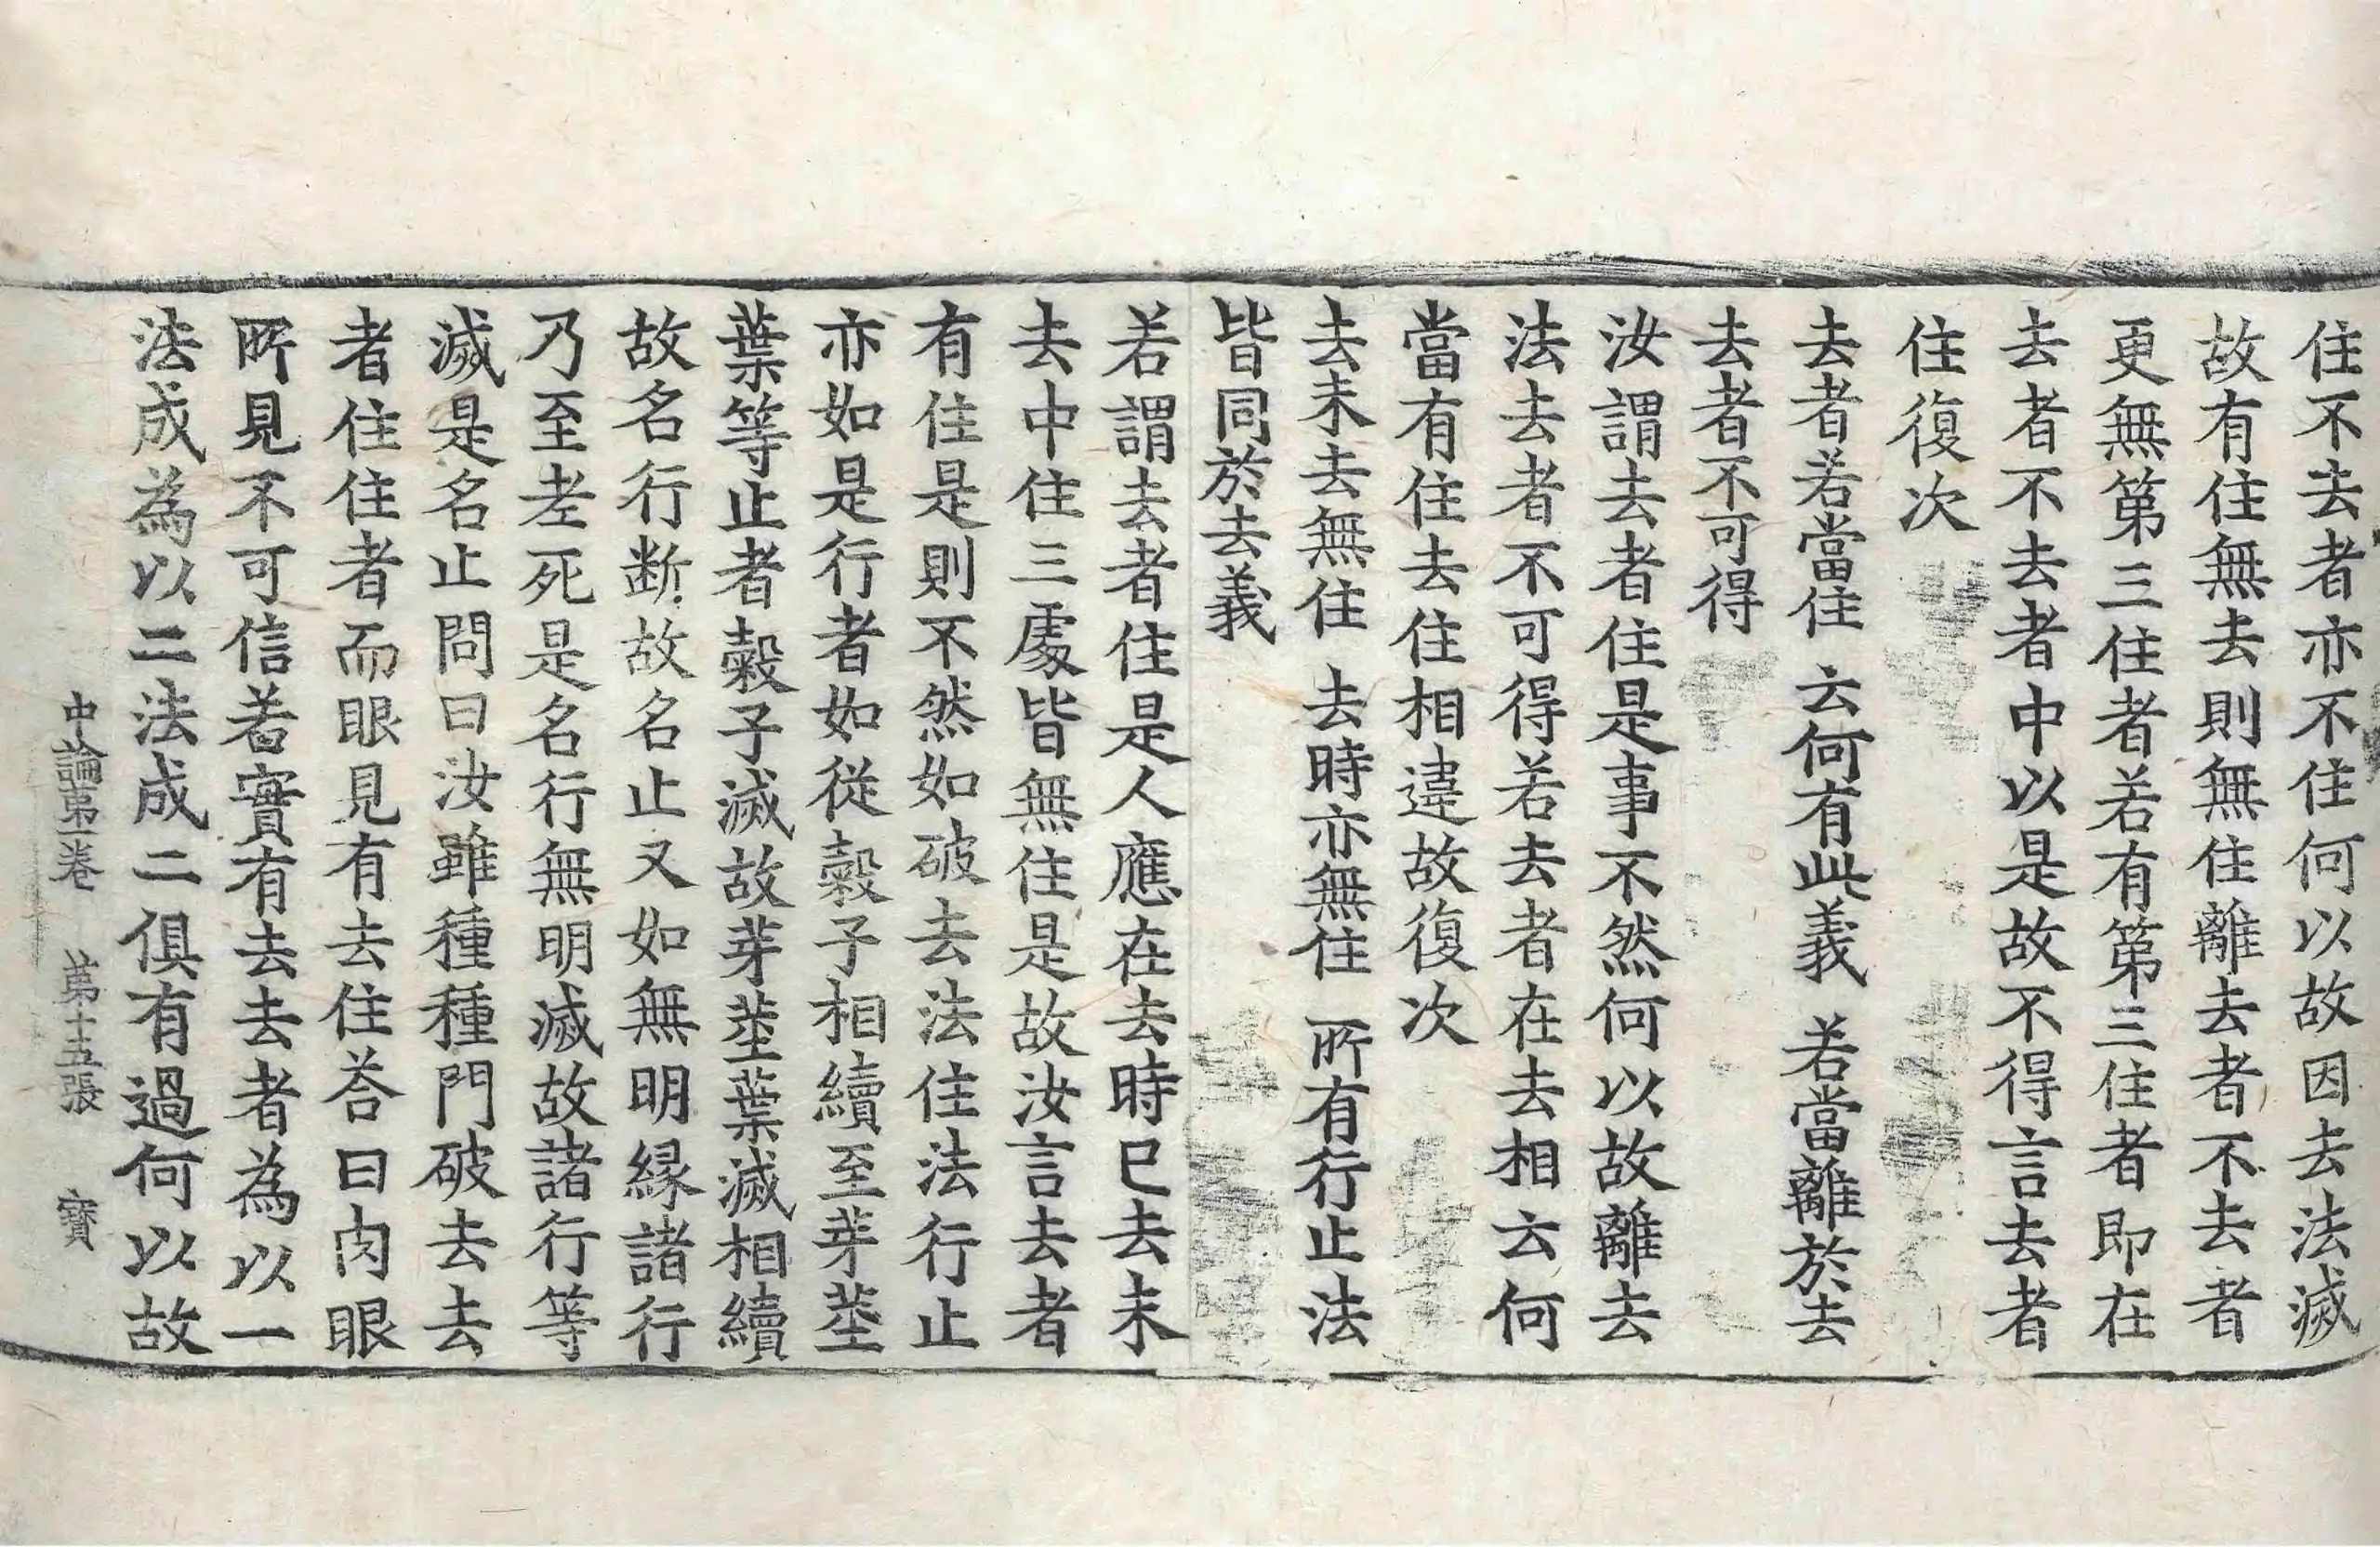 住不去者亦不住何以故因去法滅
故有住無去則無住離去者不去者
更無第三住者若有第三住者即在
去者不去者中以是故不得言去者
住復次
去者若當住 云何有此義 若當離於去
去者不可得
汝謂去者住是事不然何以故離去
法去者不可得若去者在去相云何
當有住去住相違故復次
去未去無住 去時亦無住 所有行止法
皆同於去義
若謂去者住是人應在去時已去未
去中住三處皆無住是故汝言去者
有住是則不然如破去法住法行止
亦如是行者如從糓子相續至芽莖
葉等止者糓子滅故芽莖葉滅相續
故名行断故名止又如無明縁諸行
乃至老死是名行無明滅故諸行等
滅是名止問曰汝雖種種門破去去
者住住者而眼見有去住荅曰肉眼
所見不可信若實有去去者為以一
法成為以二法成二俱有過何以故
中論第一卷 第十五張 寶